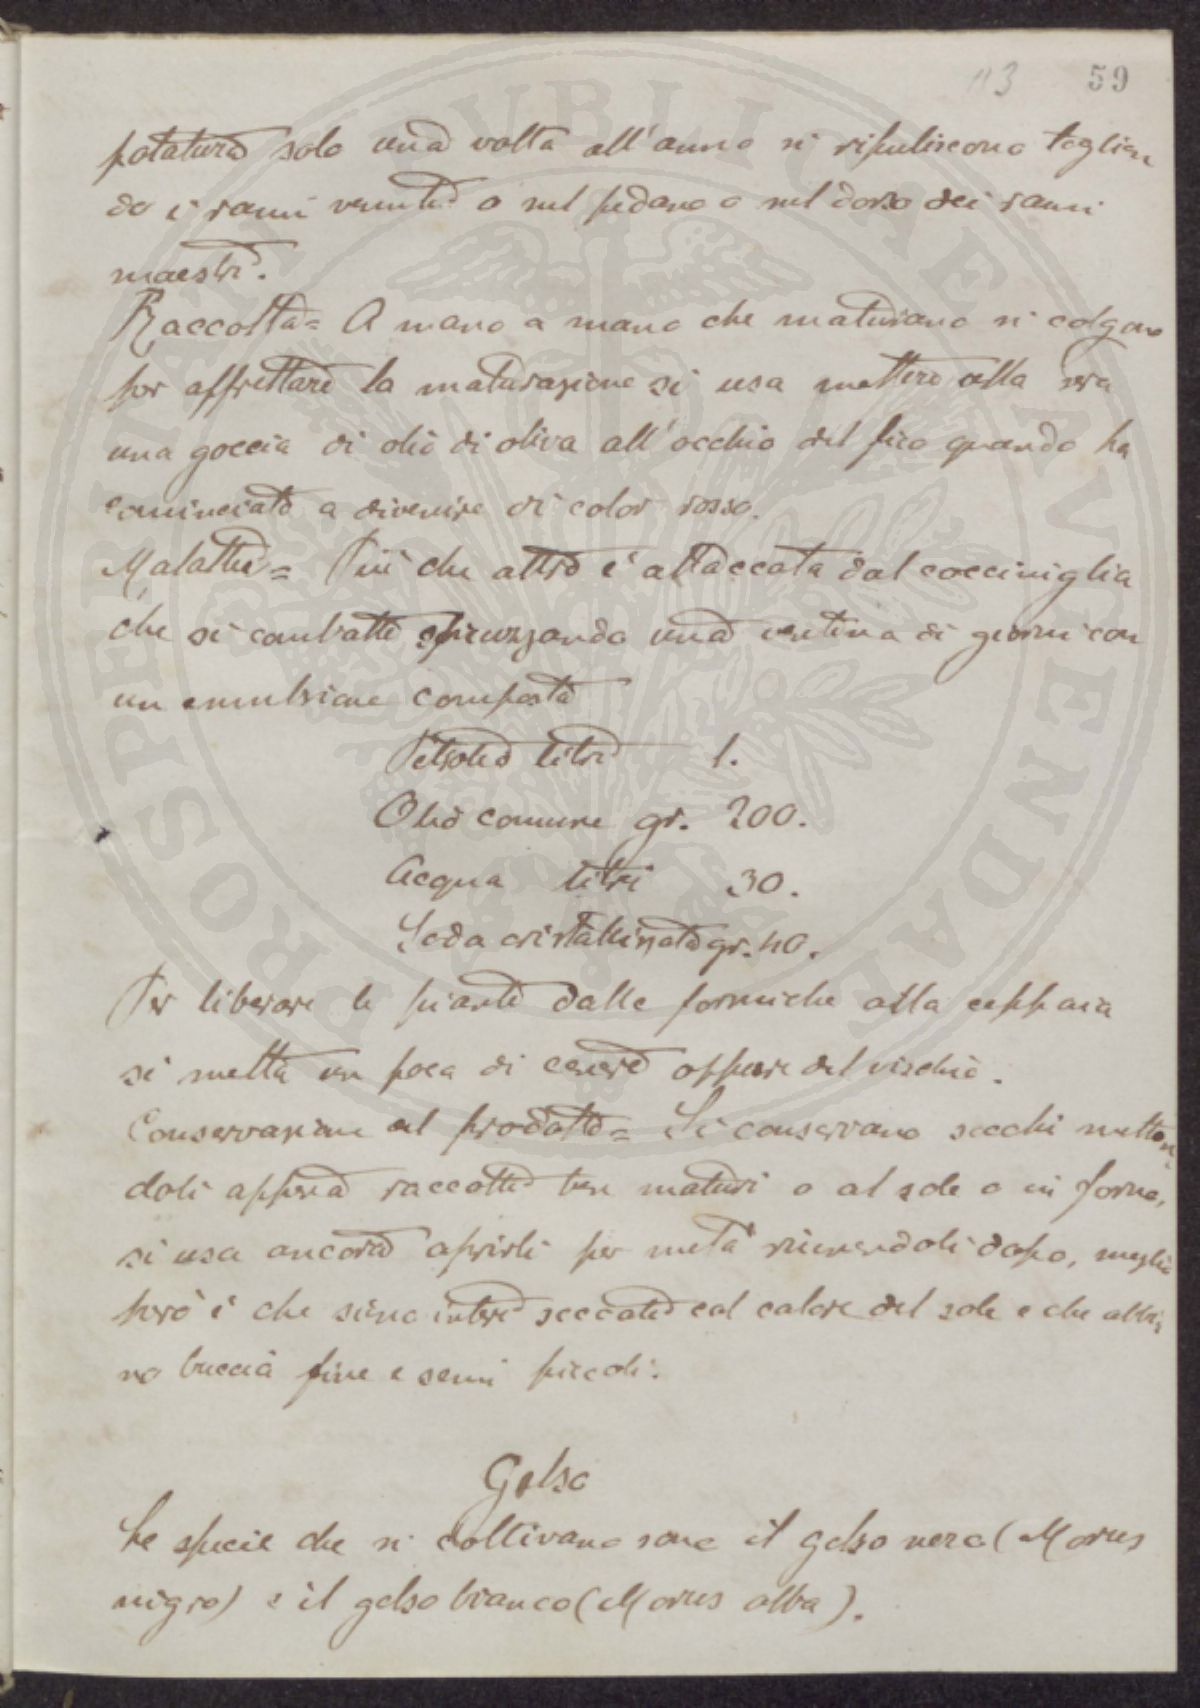 113 59
potatura solo una volta all'anno si ripuliscono toglien
do i rami venuti o sul pedano o sul dorso dei rami
maestri.
Raccolta = A mano a mano che maturano si colgono
per affrettare la maturazione si usa mettere alla sera
una goccia di olio di oliva all'occhio del fico quando ha
cominciato a divenire di color rosso.
Malattie = Più che altro è attaccata dal cocciniglia
che si combatte spruzzando una ventina di giorni con
un emulsione composta
Petrolio litri 1.
Olio comune gr. 200.
Acqua litri 30.
Soda cristallizzata gr. 40.
Per liberare le piante dalle formiche alla ceppaia
si metta un poca di cenere oppure del vischio.
Conservazione del prodotto = Si conservano secchi metten
doli appena raccolti ben maturi o al sole o in forno,
si usa ancora aprirli per metà riunendoli dopo, meglio
però è che siino interi seccati col calore del sole e che abbia
no buccia fine e semi piccoli.
Gelso
Le specie che si coltivano sono il gelso nero (Morus
nigro) e il gelso bianco (Morus alba).
PROSPERITATI PVBLICAE AVGENDAE